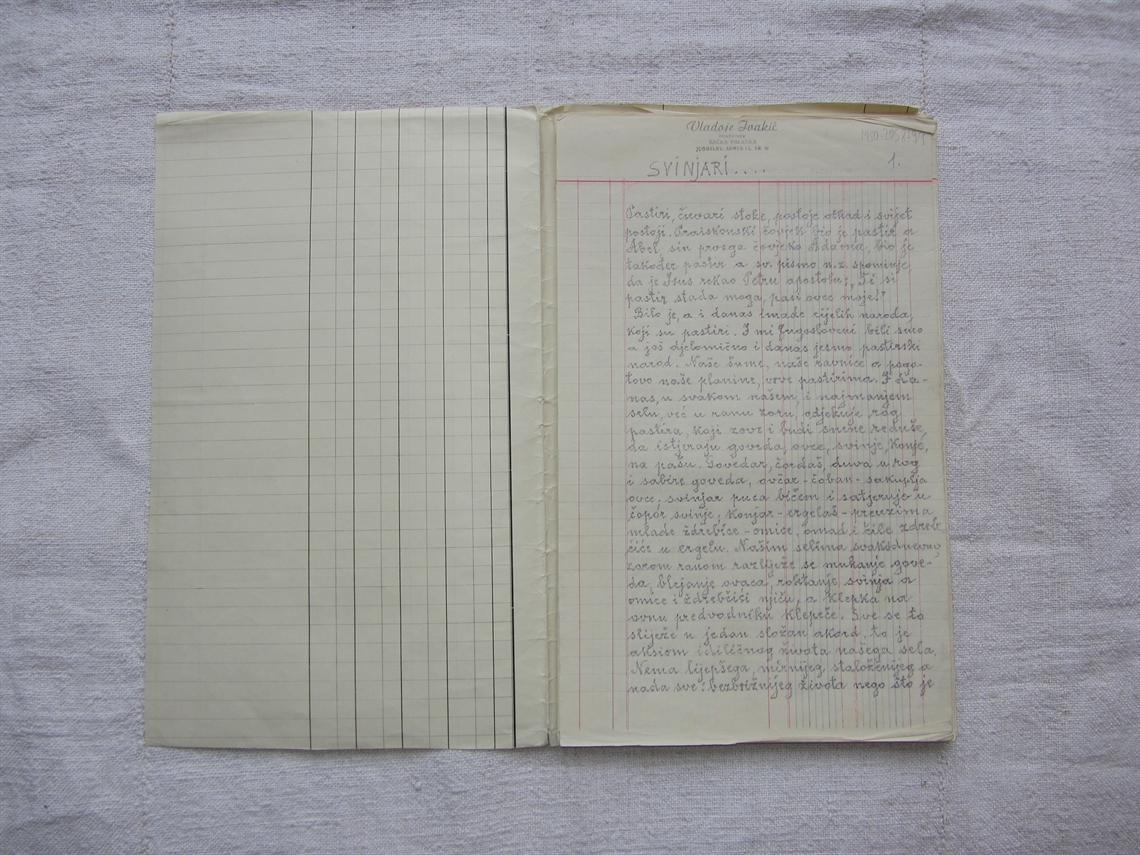 Vladoje Ivakić
SVINJARI....
1.
Pastiri, čuvari stoke, postoje otkad i svijet
postoji. Praiskonski čovjek bio je pastir a
Abel, sin prvoga čovjeka Adama, bio je
također pastir a sv. pismo n.z. spominje
da je Isus rekao Petru apostolu; „Ti si
pastir stada moga, pasi ovce moje!"
Bilo je, a i danas imade cijelih naroda,
koji su pastiri. I mi Jugosloveni bili smo
a još djelomično i danas jesmo pastirski
narod. Naše šume, naše ravnice a pogo-
tovo naše planine, vrve pastirima. I da-
nas, u svakom našem, i najmanjem
selu, već u ranu zoru, odjekuje rog
pastira, koji zove i budi snene reduše,
da istjeraju goveda, ovce, svinje, konje,
na pašu. Govedar, čordaš, duva u rog
i sabire goveda, ovčar-čoban-sakuplja
ovce, svinjar puca bičem i satjeruje u
čopor svinje, konjar-ergelaš-preuzima
mlade ždrebice-omice, omad i čile ždreb
čiće u ergelu. Našim selima svakodnevno,
zorom ranom razliježe se mukanje gove-
da, blejanje ovaca, roktanje svinja a
omice i ždrebčići njiču, a klepka na
ovnu predvodniku klepeče. Sve se to
sliježe u jedan složan akord, to je
aksiom idiličnog života našega sela.
Nema lijepšega, mirnijeg, staloženijeg a
nada sve: bezbrižnijeg života nego što je